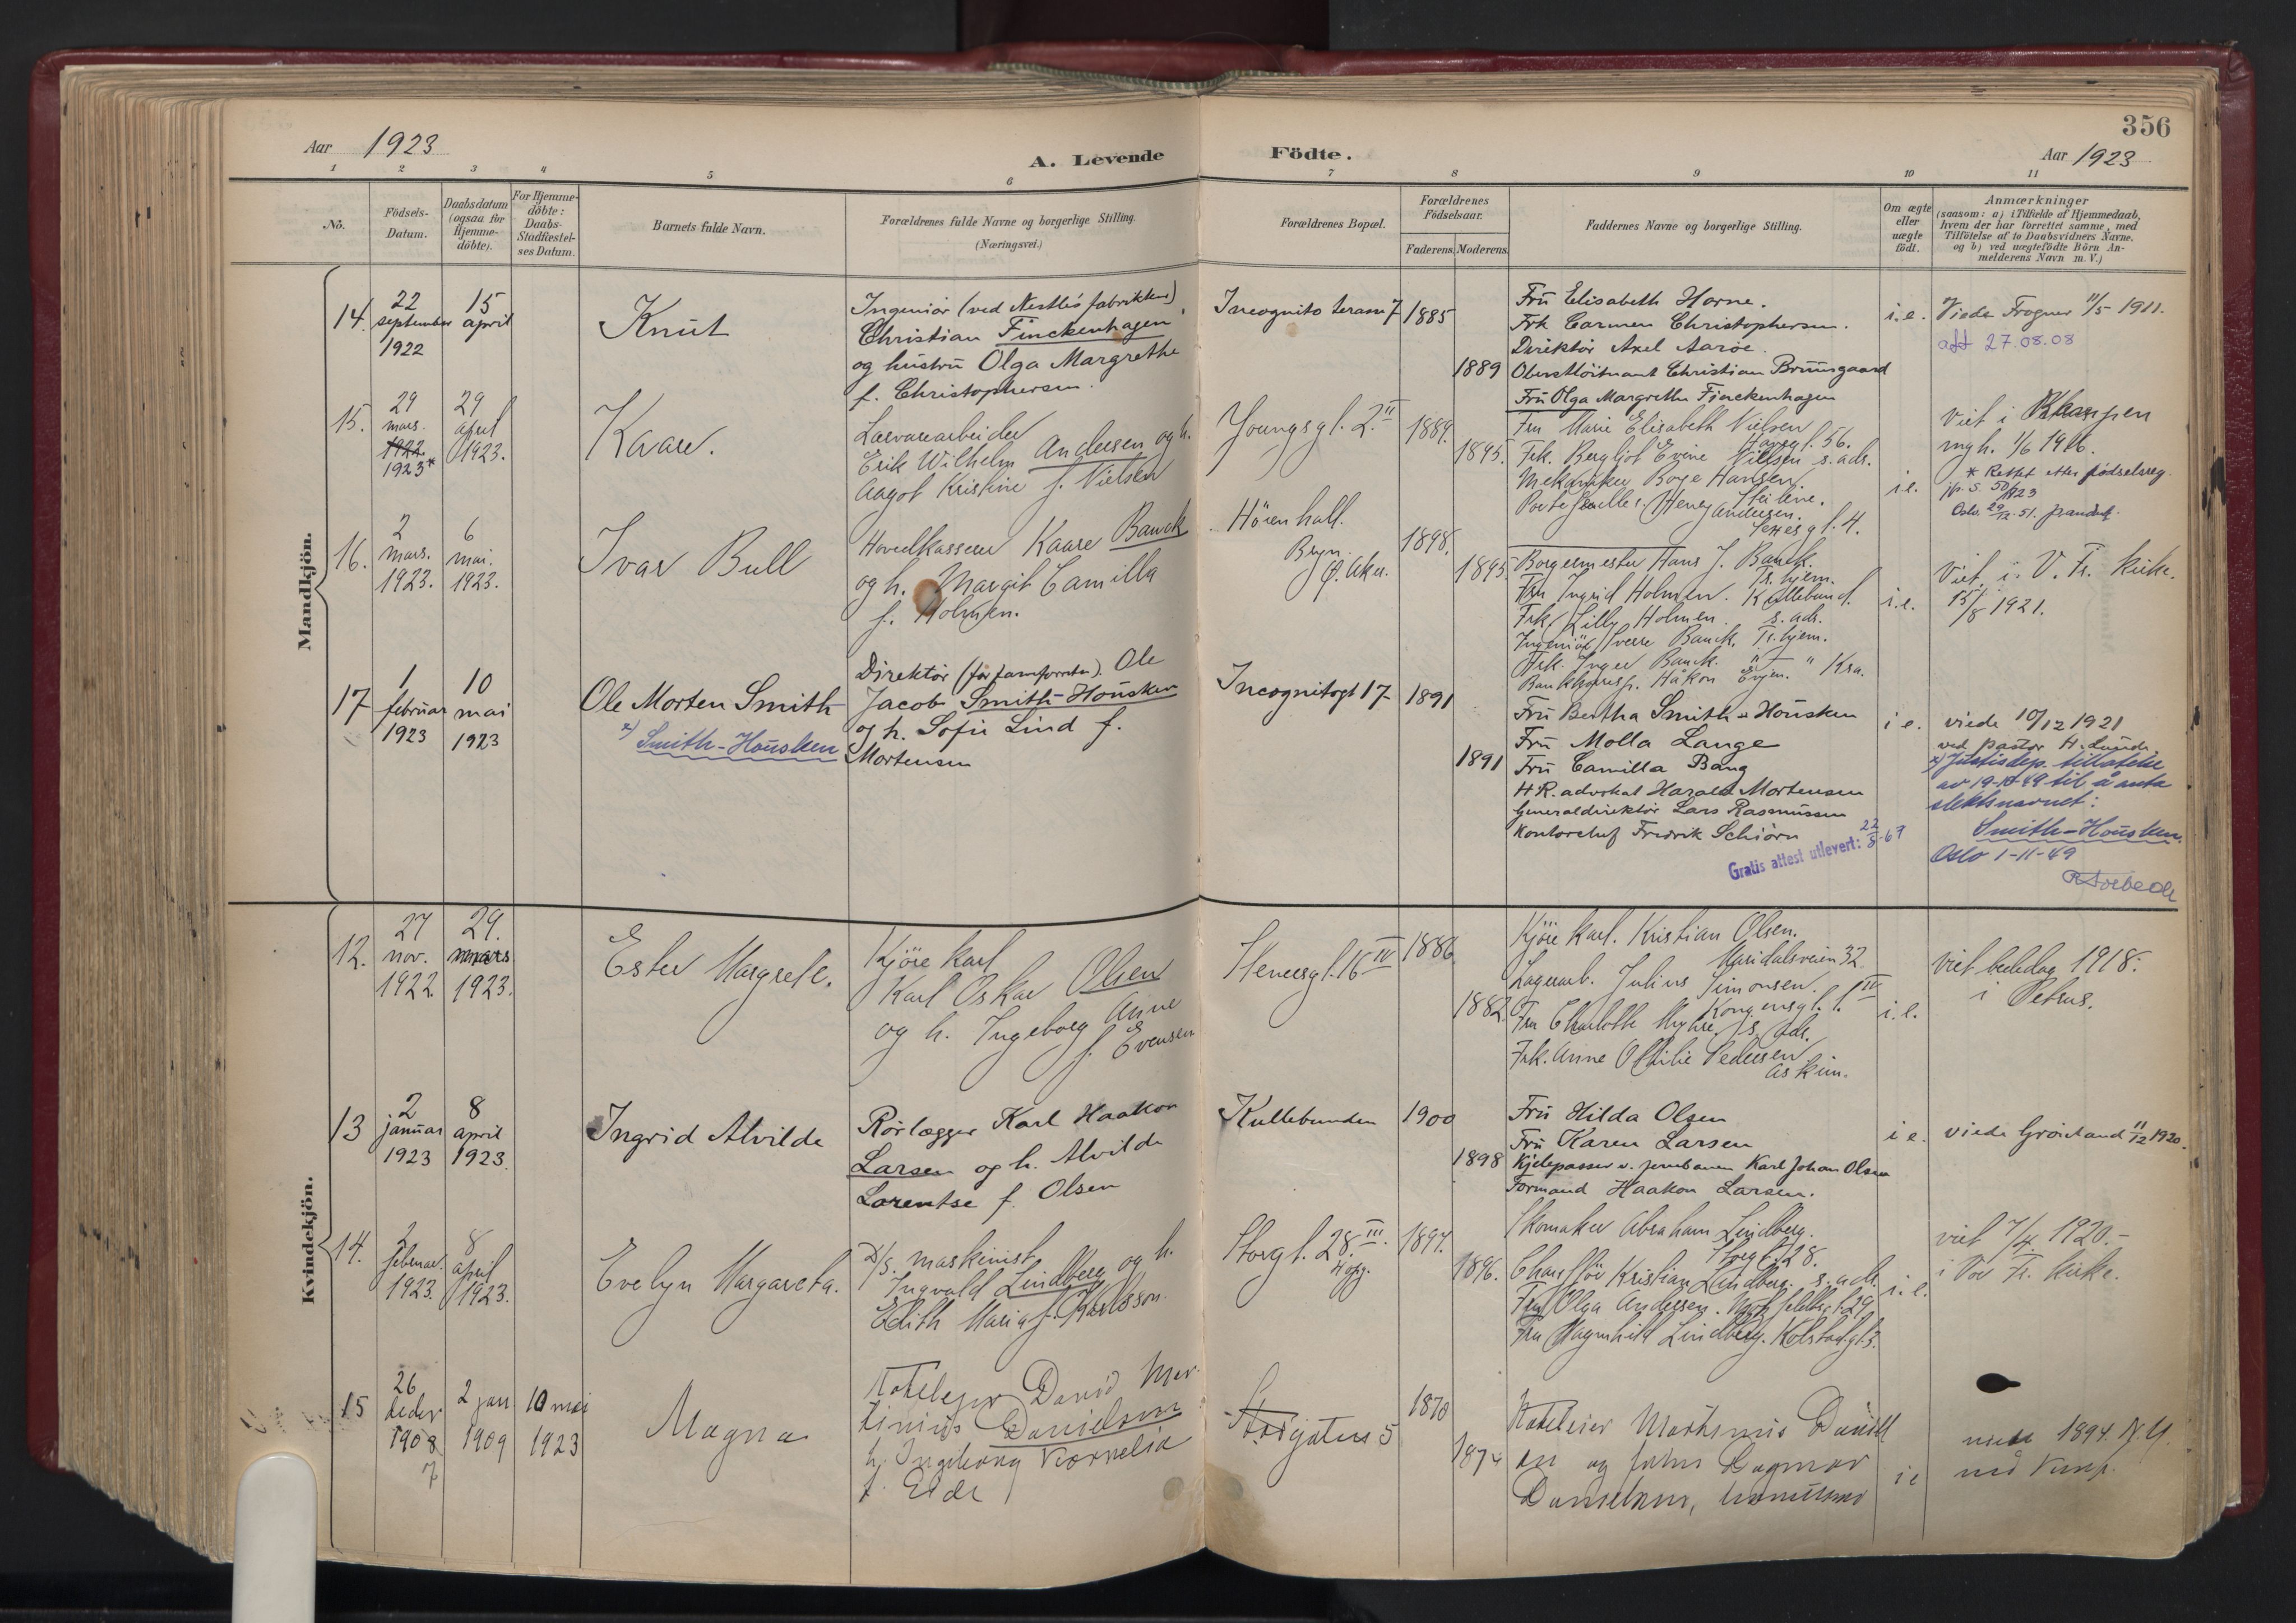 356
Aar 1923
A. Levende
Födte.
Aar 1923
1 2 3 4 5 6 7 8 9 10 11
No.
Födsels-
Datum.
Daabsdatum
(ogsaa for
Hjemme-
döbte).
For Hjemme-
döbte:
Daabs-
Stadfæstel-
ses Datum.
Barnets fulde Navn.
Forældrenes fulde Navne og borgerlige Stilling.
(Næringsvei.)
Forældrenes Bopæl.
Forældrenes
Födselsaar.
Faderens. Moderens.
Faddernes Navne og borgerlige Stilling.
Om ægte
eller
uægte
födt.
Anmærkninger
(saasom: a) i Tilfælde af Hjemmedaab,
hvem der har forrettet samme, med
Tilföielse af to Daabsvidners Navne,
og b) ved uægtefödte Börn An-
melderens Navn m. V.)
Mandkjön.
14.
22
september
1922
15
april
Knut
Ingeniør (ved Nestlés fabrikker)
Christian Finckenhagen
og hustru Olga Margrethe
f. Christophersen.
Incognito terasse 7
1885
1889
Fru Elisabeth Horne.
Frk Carmen Christophersen.
Direktør Axel Aarøe.
Oberstløitnant Christian Bruusgaard
Fru Olga Margrethe Finckenhagen
i.e.
Viede Frogner 11/5 1911.
att 27.08.08
15.
29
mars.
1922.
1923*
29
april
1923.
Kaare.
Lærvarearbeider
Erik Wilhelm Andersen og h.
Aagot Kristine f. Nielsen
Youngsgt. 2. II
1889.
1895.
Fru Marie Elisabeth Nielsen
Hausgt. 56.
Frk. Bergljot Evine Nielsen s. ads.
Mekaniker Boye Hansen.
Henry Andersen.
i.e.
Viet i Kampen
mgh. 1/6 1916.
* Rettet etter fødselsreg.
Oslo 29/12.51.
16.
2
mars.
1923.
6
mai.
1923.
Ivar Bull
Hovedkasserer Kaare Banck
og h. Margit Camilla
f. Holmen.
Hören hall.
Bryn.
Ø. Aker.
1898.
1895
Borgermester Hans J. Banck.
Tr. hjem.
Fru Ingrid Holmen. Kullebund.
Frk Lilly Holmen. s. ads.
Ingeniør Sverre Banck, Tr. hjem.
Frk. Inger Banck. " "
Bankkorresp. Håkon Evjen. Kra.
i.e.
Viet i V. Fr. kirke.
15/8 1921.
17
1
februar
1923
10
mai
1923
Ole Morten Smith
x) Smith-Housken
Direktør (for Jernforretn.) Ole
Jacob Smith-Housken
og h. Sofie Lind f.
Mortensen
Incognitogt 17
1891
1891
Fru Bertha Smith-Housken
Fru Molla Lange
Fru Camilla Bang
H.R. advokat Harald Mortensen
Generaldirektør Lars Rasmussen
Kontorchef Fredrik Schiørn
Gratis attest utlevert: 22/8-67
i e.
viede 10/12 1921
ved pastor H. Lunde.
x) Justisdep. tillatelse
av 19-10-49 til å anta
slektsnavnet:
Smith-Housken.
Oslo 1-11-49
Kvindekjön.
12.
27
nov.
1922.
29.
mars
1923.
Ester Margrete.
Kjørekarl
Karl Oskar Olsen
og h. Ingeborg Anne
f. Evensen
Stenersgt. 16 IV
1886.
1882.
Kjørekarl. Kristian Olsen.
Maridalsveien 32.
Lagerarb. Julius Simonsen.
Kongensgt. 1. IV
Fru Charlotte Myhre, s. ads.
Frk. Anne Othilie Pedersen
Askim.
i.e.
Viet bededag 1918.
i Petrus.
13
2
januar
1923
8
april
1923.
Ingrid Alvilde
Rørlægger Karl Haakon
Larsen og h. Alvilde
Lorentse f. Olsen
Kullebunden
1900
1898
Fru Hilda Olsen
Fru Karen Larsen
Kjelepasser v. jernbanen Karl Johan Olsen
Formand Haakon Larsen.
i e.
viede Grønland 11/12 1920.
14.
2
februar.
1923.
8
april
1923.
Evelyn Margareta.
D/S. maskinist
Ingvald Lindberg og h.
Edith Maria f. Karlsson.
Storgt. 28. III.
Hopg.
1897.
1896.
Skomaker Abraham Lindberg.
Storgt. 28.
Chauffør Kristian Lindberg. s. ads.
Fru Olga Andersen.
Fru Ragnhild Lindberg. Kolstadgt. 3.
i.e.
viet 7/4 1920.-
i Vor Fr. kirke.
15
26
decbr
1908
7
2 jan
1909
10 mai
1923
Magna
Hoteleier David Mar-
tinius Danielsen
h. Ingeborg Kornelia
f. Eide
Storgatens 5
1870
1874
Hoteleier Martinius Daniel
sen og frøken Dagmar
Danielsen,
i e
1894. N.Y.